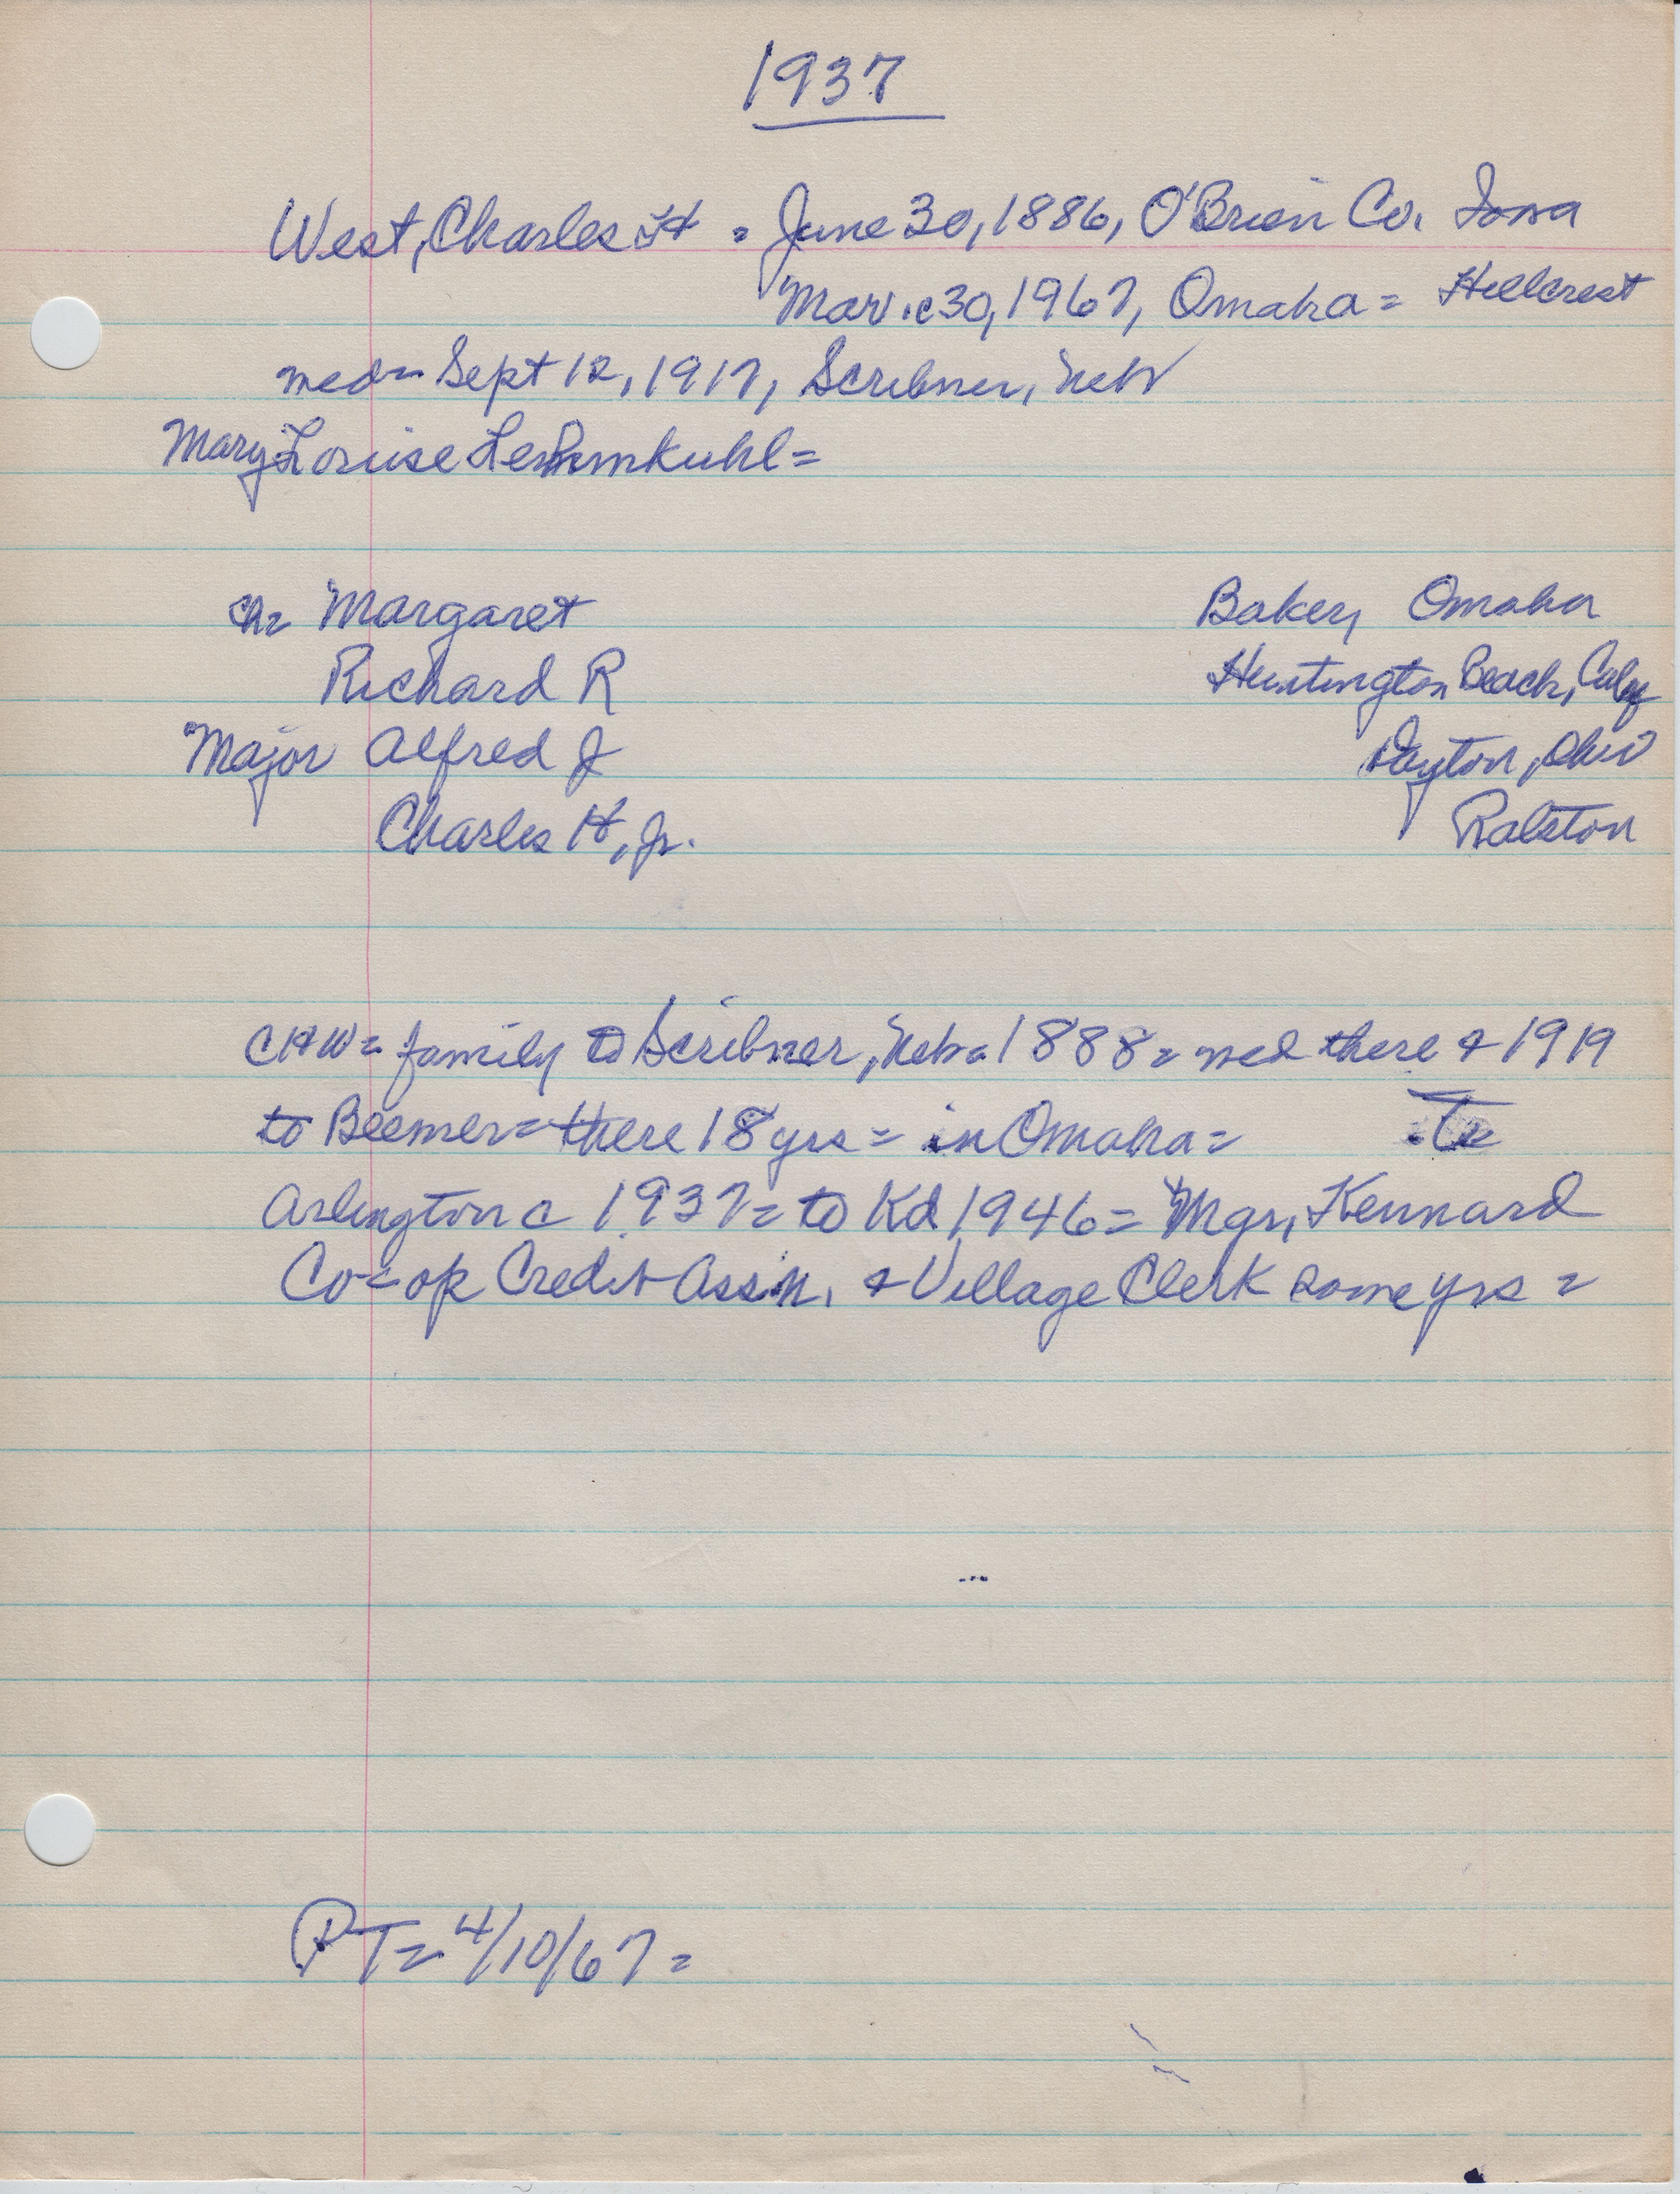 1937
West, Charles H = June 30, 1886, O'Brien Co. Iowa
Mar. c30, 1967, Omaha = Hillcrest
med = Sept 12, 1917, Scribner, Neb
Mary Louise Lehmkuhl =
ch= Margaret Baker, Omaha
Richard R Huntington Beach, Calif
Major Alfred J Dayton, Ohio
Charles H, Jr. Ralston
CHW = family to Scribner, Neb = 1888 = med there & 1919
to Beemer = there 18 yrs = in Omaha = To
Arlington c 1937 = to Kd 1946 = Mgr, Kennard
Co-op Credit Assn. & Village Clerk some yrs =
PT = 4/10/67 =